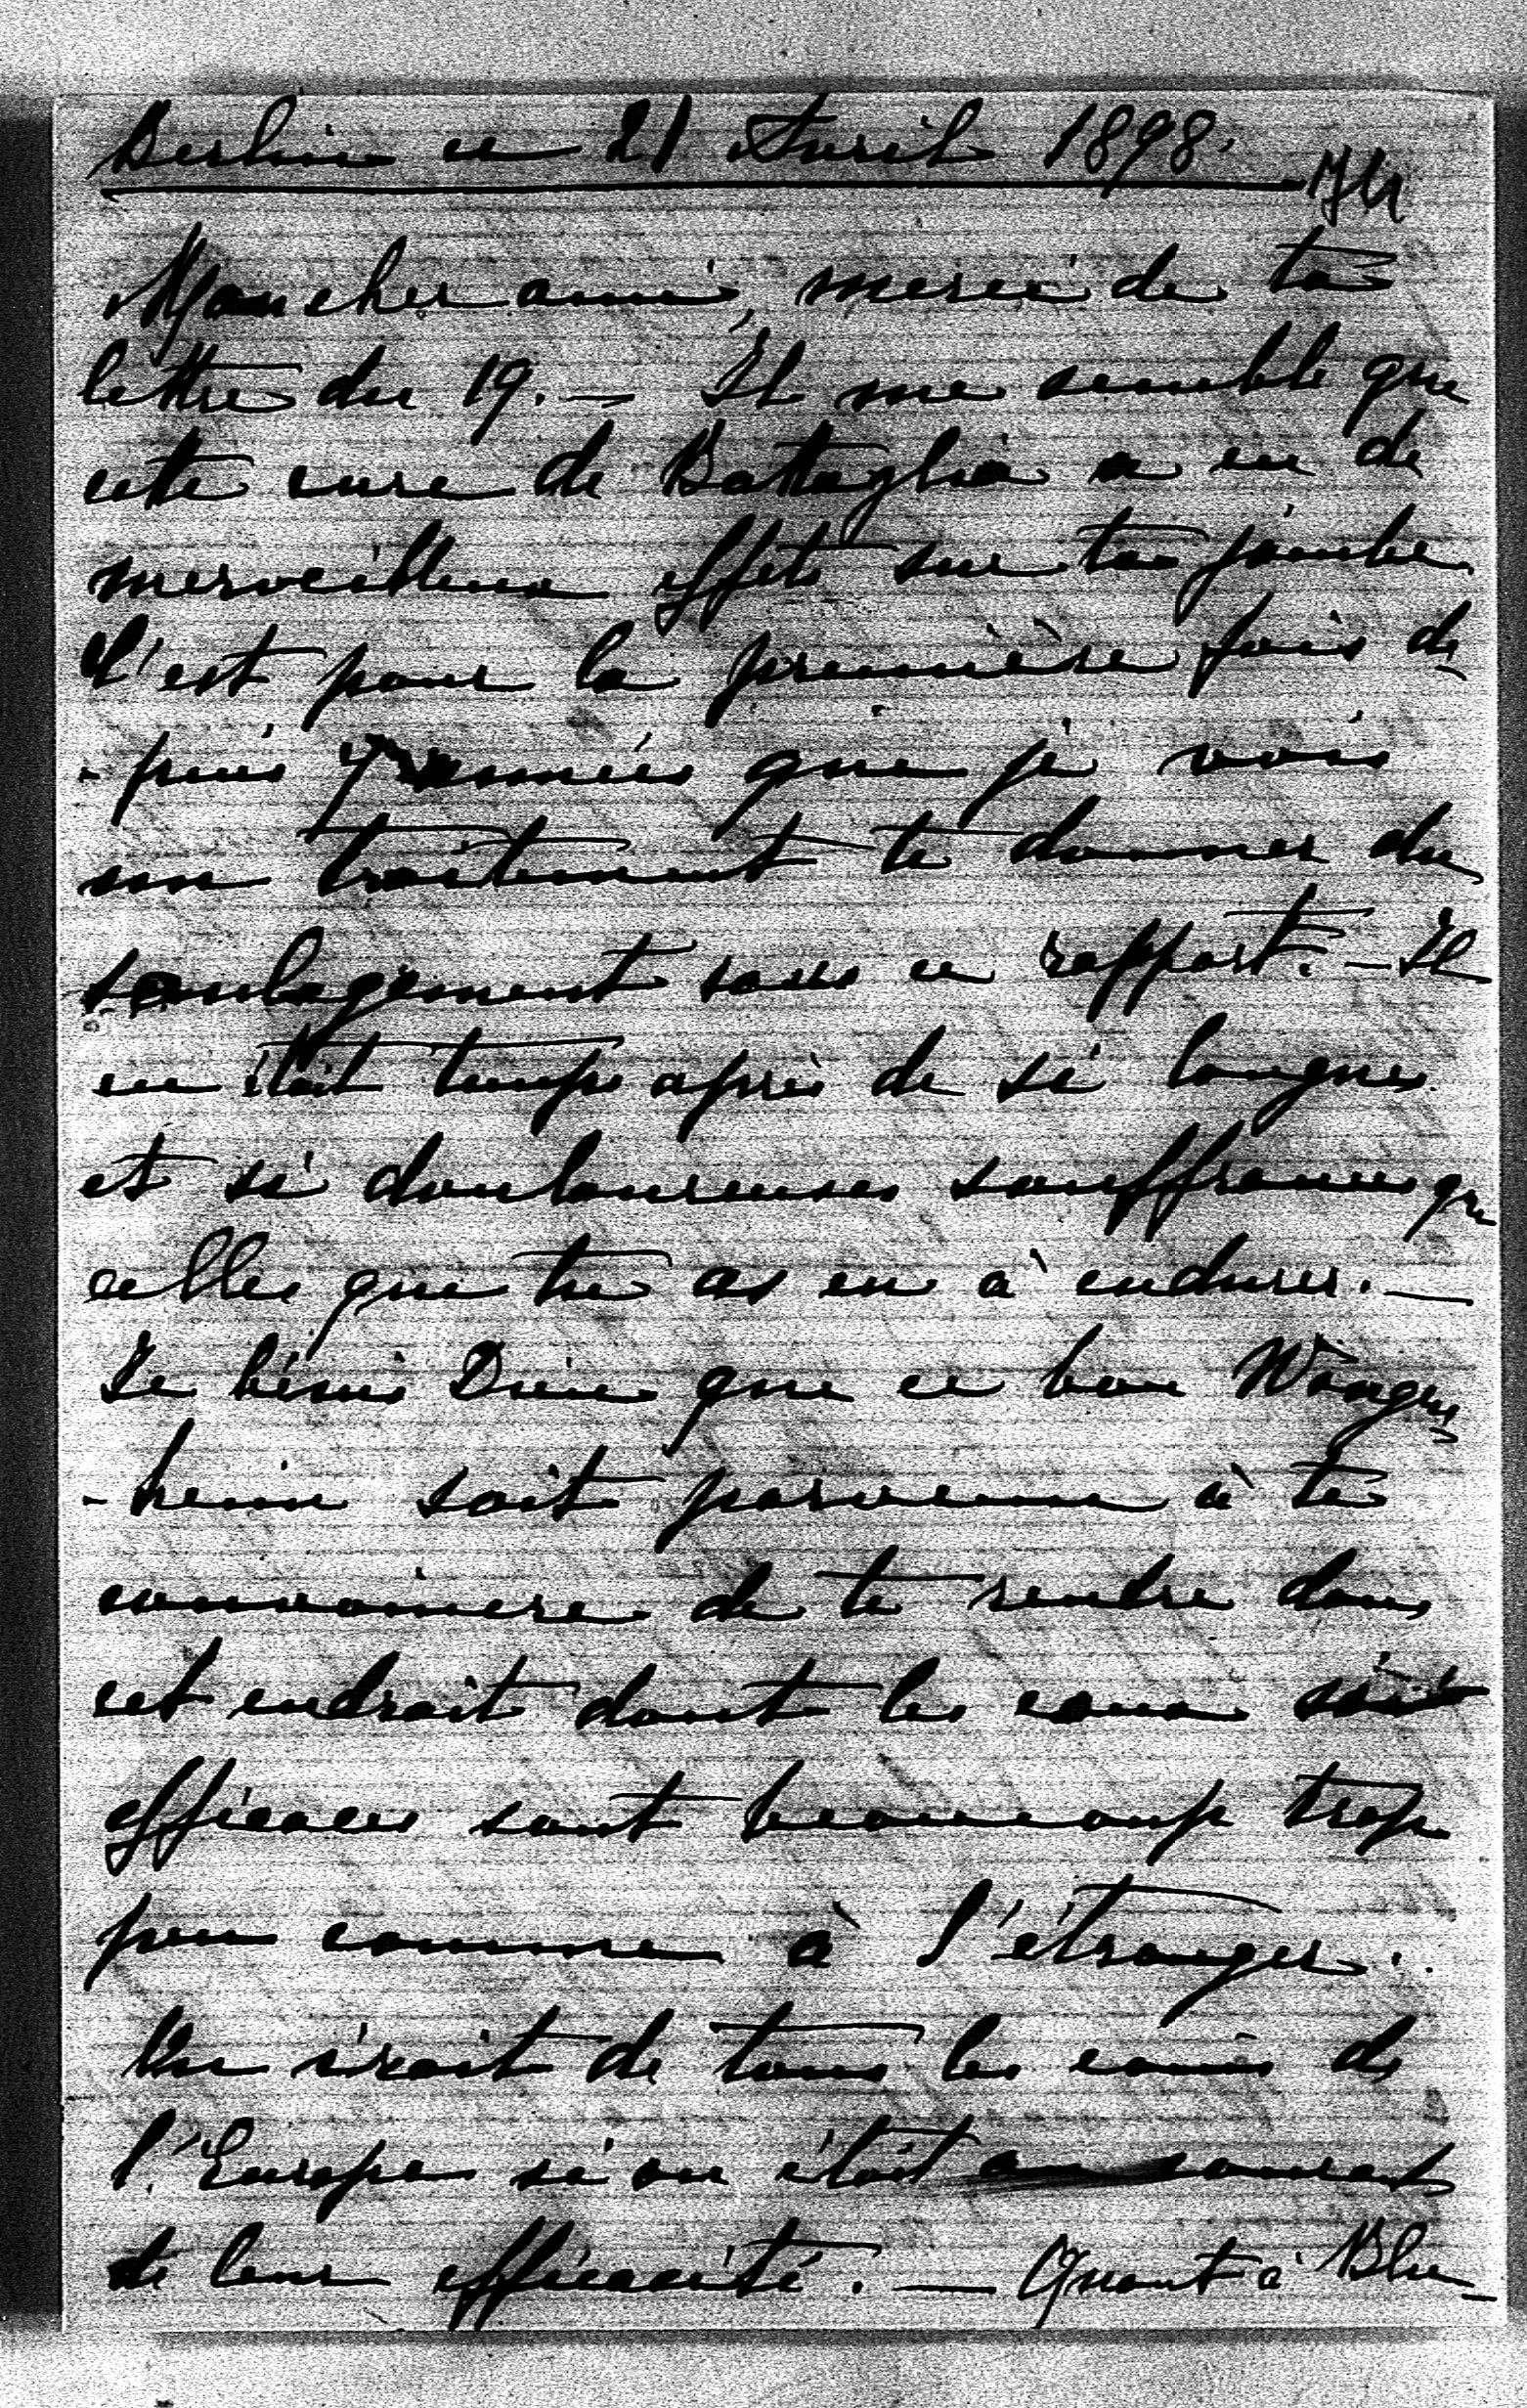 Berlin ce 21 Avril 1898.
Mon cher ami, merci de ta
lettre du 19. — Il me semble que
cette cure de Battaglia a eu de
merveilleux effets sur ta jambe.
C'est pour la première fois de
-puis 7 années que je vois
un traitement te donner du
soulagement sous ce rapport. — Il
en était temps après de si longues
et si douloureuses souffrances que
celles que tu as eu à endurer. —
Je bénis Dieu que ce bon Wangen
-heim soit parvenu à te
convaincre de te rendre dans
cet endroit dont les eaux si
efficaces sont beaucoup trop
peu connues à l'étranger.
On irait de tous les coins de
l'Europe si on était au courant
de leur efficacité. — Quant à Blu-